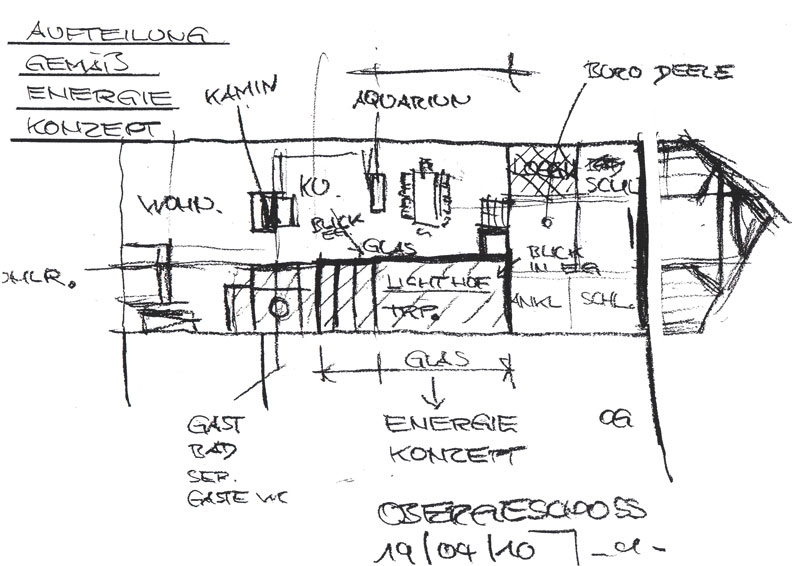 AUFTEILUNG
GEMÄß
ENERGIE
KONZEPT
KAMIN
AQUARIUM
BÜRO DEELE
WOHN.
KÜ.
SCHL
BLICK
EG
GLAS
BLICK
IN EG
LICHTHOF
TRP.
ANKL
SCHL.
GLAS
GAST
BAD
SEP.
GÄSTE WC
ENERGIE
KONZEPT
OG
OBERGESCHOSS
19/04/10